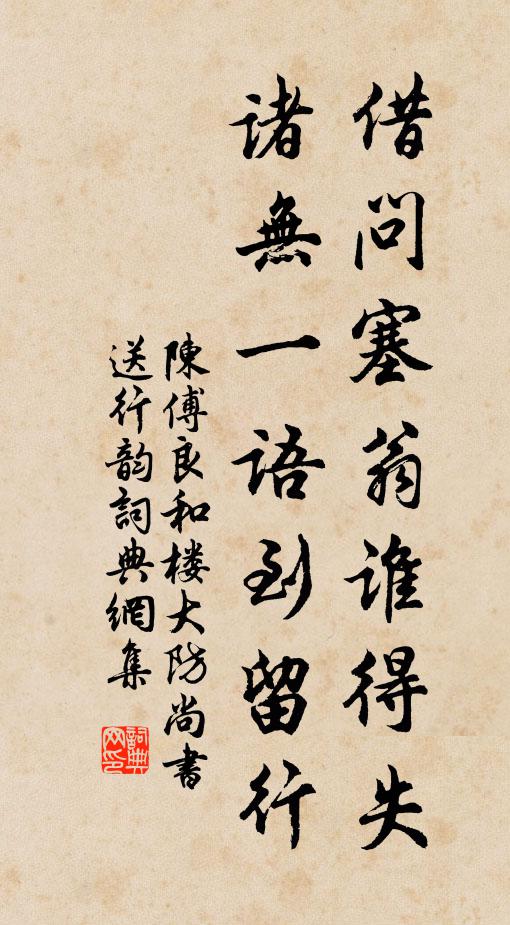 借問塞翁誰得失
諸無一語到留行
陳傅良和楼大防尚書
送行韵詞典網集
詞典网印